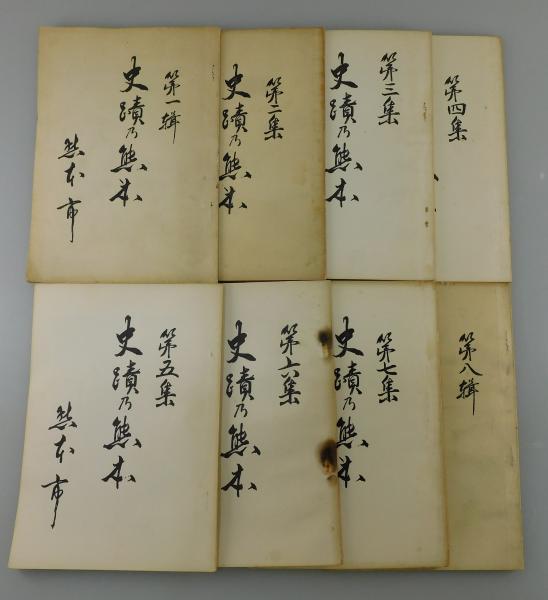 第一輯
史蹟乃熊本
熊本市
第二集
史蹟乃熊本
第三集
史蹟乃熊本
第四集
第五集
史蹟乃熊本
熊本市
第六集
史蹟乃熊本
第七集
史蹟乃熊本
第八輯